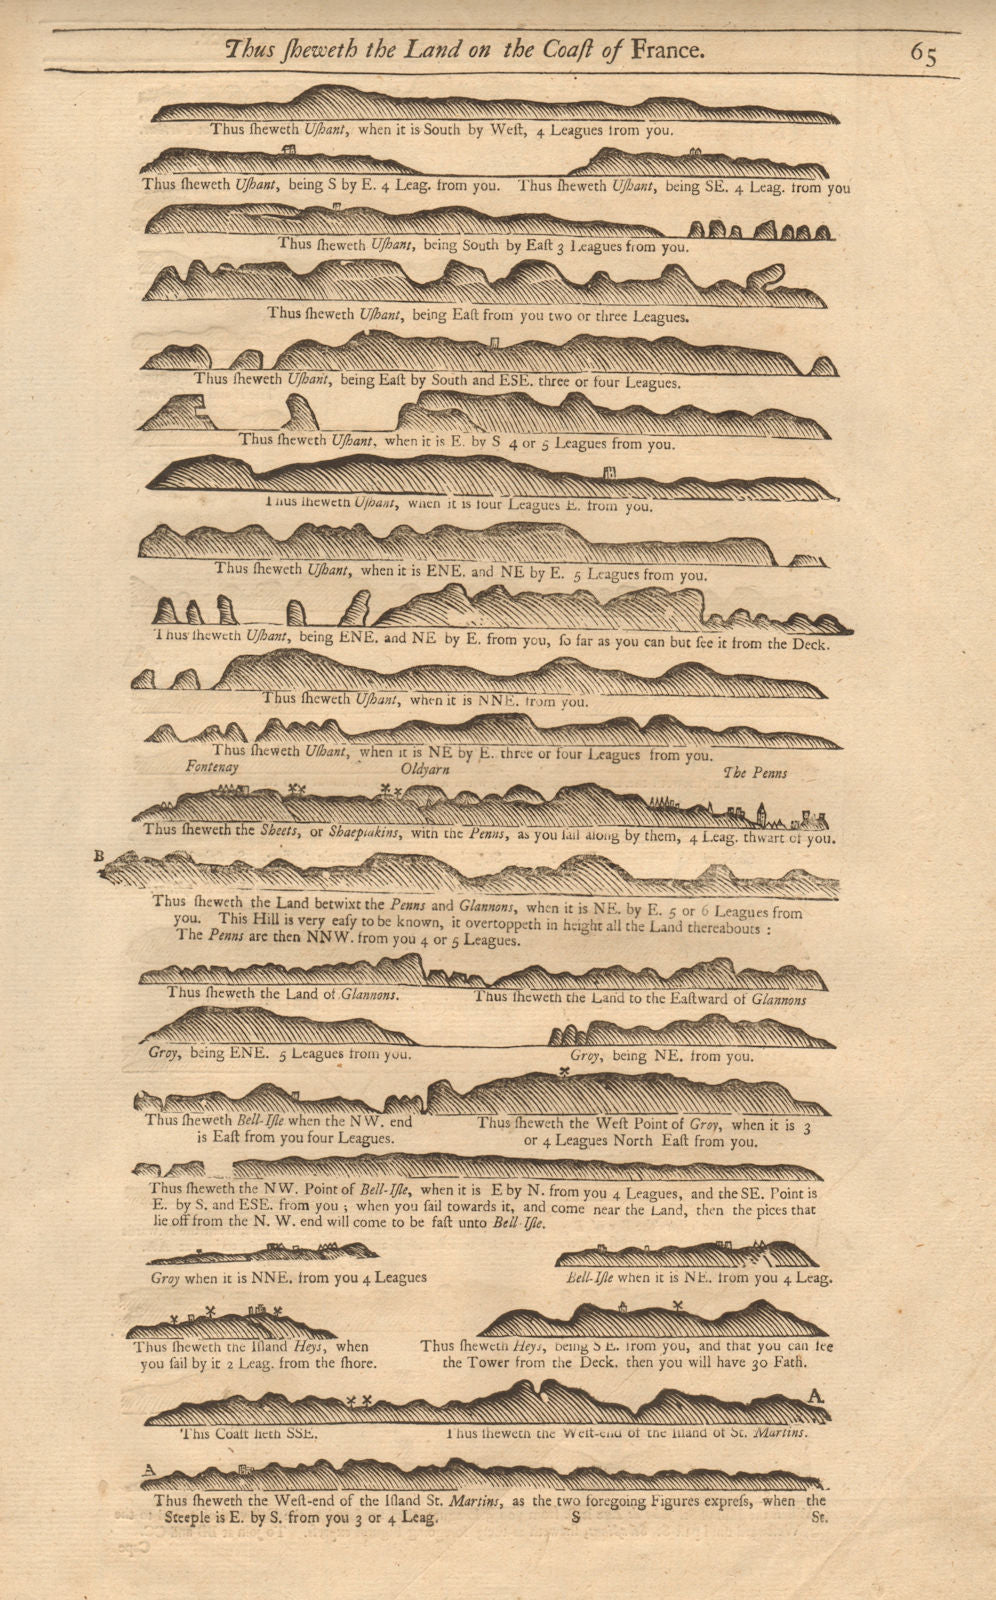 Thus ſheweth the Land on the Coaſt of France. 65
Thus ſheweth Uſhant, when it is South by Weſt, 4 Leagues from you.
Thus ſheweth Uſhant, being S by E. 4 Leag. from you. Thus ſheweth Uſhant, being SE. 4 Leag. from you
Thus ſheweth Uſhant, being South by Eaſt 3 Leagues from you.
Thus ſheweth Uſhant, being Eaſt from you two or three Leagues.
Thus ſheweth Uſhant, being Eaſt by South and ESE. three or four Leagues.
Thus ſheweth Uſhant, when it is E. by S 4 or 5 Leagues from you.
Thus ſheweth Uſhant, when it is four Leagues E. from you.
Thus ſheweth Uſhant, when it is ENE. and NE by E. 5 Leagues from you.
Thus ſheweth Uſhant, being ENE. and NE by E. from you, ſo far as you can but ſee it from the Deck.
Thus ſheweth Uſhant, when it is NNE. from you.
Thus ſheweth Uſhant, when it is NE by E. three or four Leagues from you.
Fontenay Oldyarn The Penns
Thus ſheweth the Sheets, or Shaepiakins, with the Penns, as you ſail along by them, 4 Leag. thwart of you.
B
Thus ſheweth the Land betwixt the Penns and Glannons, when it is NE. by E. 5 or 6 Leagues from
you. This Hill is very eaſy to be known, it overtoppeth in height all the Land thereabouts :
The Penns are then NNW. from you 4 or 5 Leagues.
Thus ſheweth the Land of Glannons. Thus ſheweth the Land to the Eaſtward of Glannons
Groy, being ENE. 5 Leagues from you. Groy, being NE. from you.
Thus ſheweth Bell-Iſle when the NW. end
is Eaſt from you four Leagues.
Thus ſheweth the Weſt Point of Groy, when it is 3
or 4 Leagues North Eaſt from you.
Thus ſheweth the NW. Point of Bell-Iſle, when it is E by N. from you 4 Leagues, and the SE. Point is
E. by S. and ESE. from you ; when you ſail towards it, and come near the Land, then the pices that
lie off from the N. W. end will come to be faſt unto Bell-Iſle.
Groy when it is NNE. from you 4 Leagues Bell-Iſle when it is NE. from you 4 Leag.
Thus ſheweth the Iſland Heys, when
you ſail by it 2 Leag. from the ſhore.
Thus ſheweth Heys, being S E. from you, and that you can ſee
the Tower from the Deck. then you will have 30 Fath.
A.
This Coaſt lieth SSE. Thus ſheweth the Weſt-end of the Iſland of St. Martins.
A
Thus ſheweth the Weſt-end of the Iſland St. Martins, as the two foregoing Figures expreſs, when the
Steeple is E. by S. from you 3 or 4 Leag. S St.